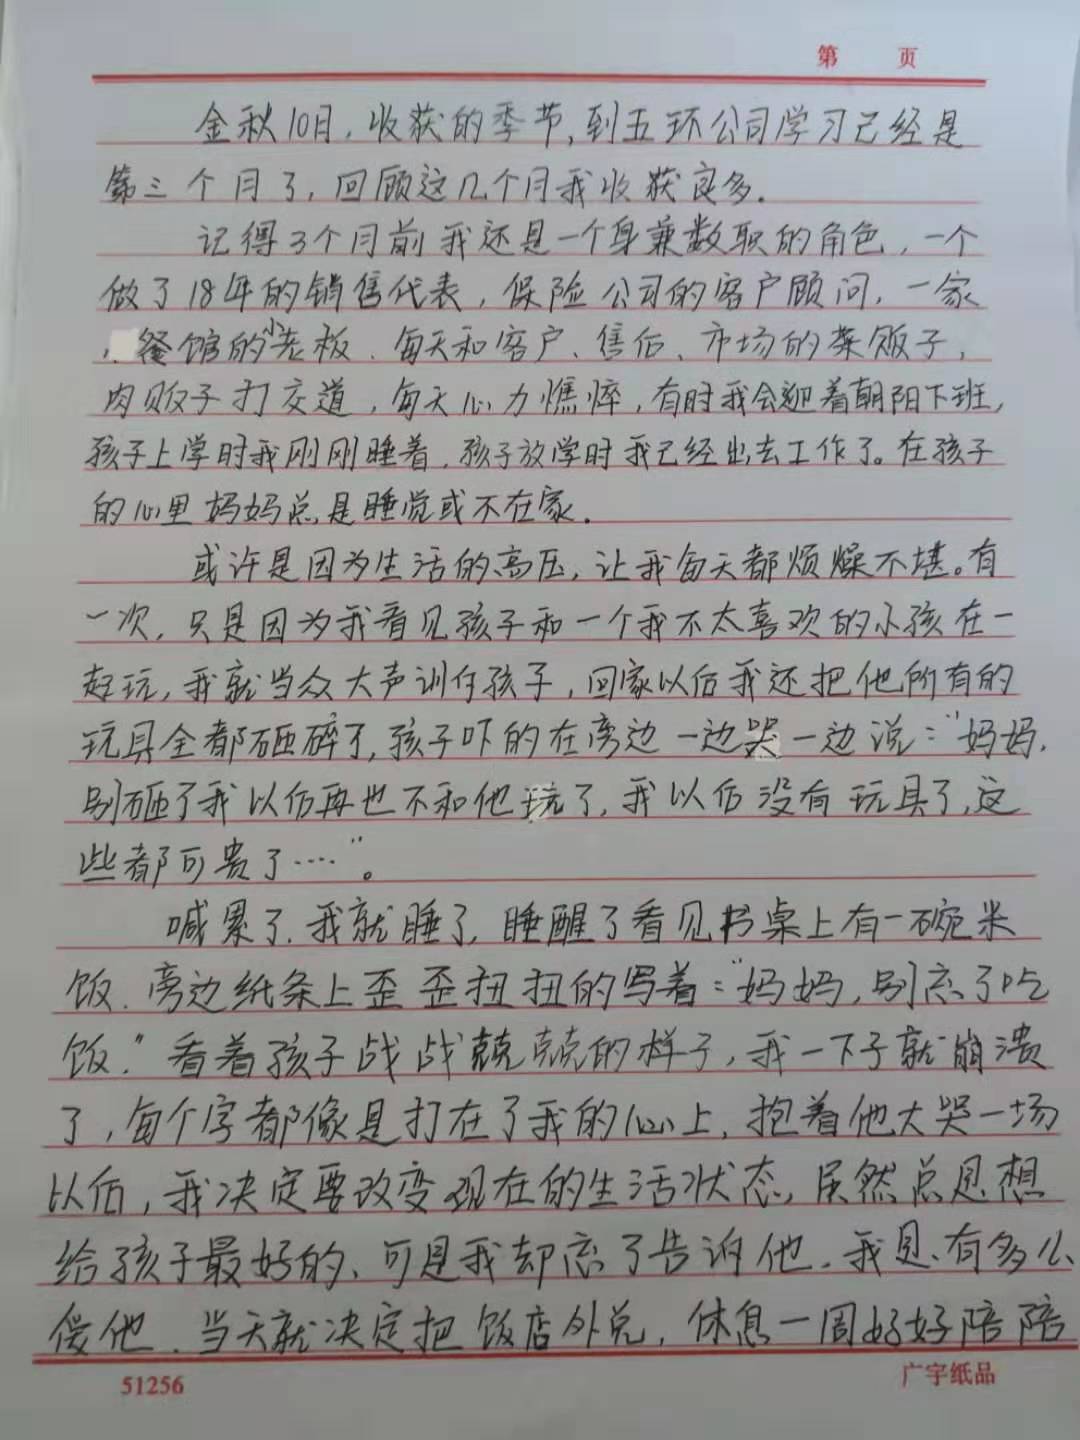 第 页
金秋10月，收获的季节，到五环公司学习已经是
第三个月了，回顾这几个月我收获良多.
记得3个月前我还是一个身兼数职的角色，一个
做了18年的销售代表，保险公司的客户顾问，一家
餐馆的小老板、每天和客户、售后、市场的菜贩子，
肉贩子打交道，每天心力憔悴，有时我会迎着朝阳下班，
孩子上学时我刚刚睡着，孩子放学时我已经出去工作了。在孩子
的心里妈妈总是睡觉或不在家.
或许是因为生活的高压，让我每天都烦燥不堪。有
一次，只是因为我看见孩子和一个我不太喜欢的小孩在一
起玩，我就当众大声训斥孩子，回家以后我还把他所有的
玩具全都砸碎了，孩子吓的在旁边一边哭一边说："妈妈，
别砸了我以后再也不和他玩了，我以后没有玩具了，这
些都可贵了……"。
喊累了，我就睡了，睡醒了看见书桌上有一碗米
饭、旁边纸条上歪歪扭扭的写着："妈妈，别忘了吃
饭."看着孩子战战兢兢的样子，我一下子就崩溃
了，每个字都像是打在了我的心上，抱着他大哭一场
以后，我决定要改变现在的生活状态，虽然总是想
给孩子最好的、可是我却忘了告诉他、我是、有多么
爱他、当天就决定把饭店外兑，休息一周好好陪陪
51256
广宇纸品